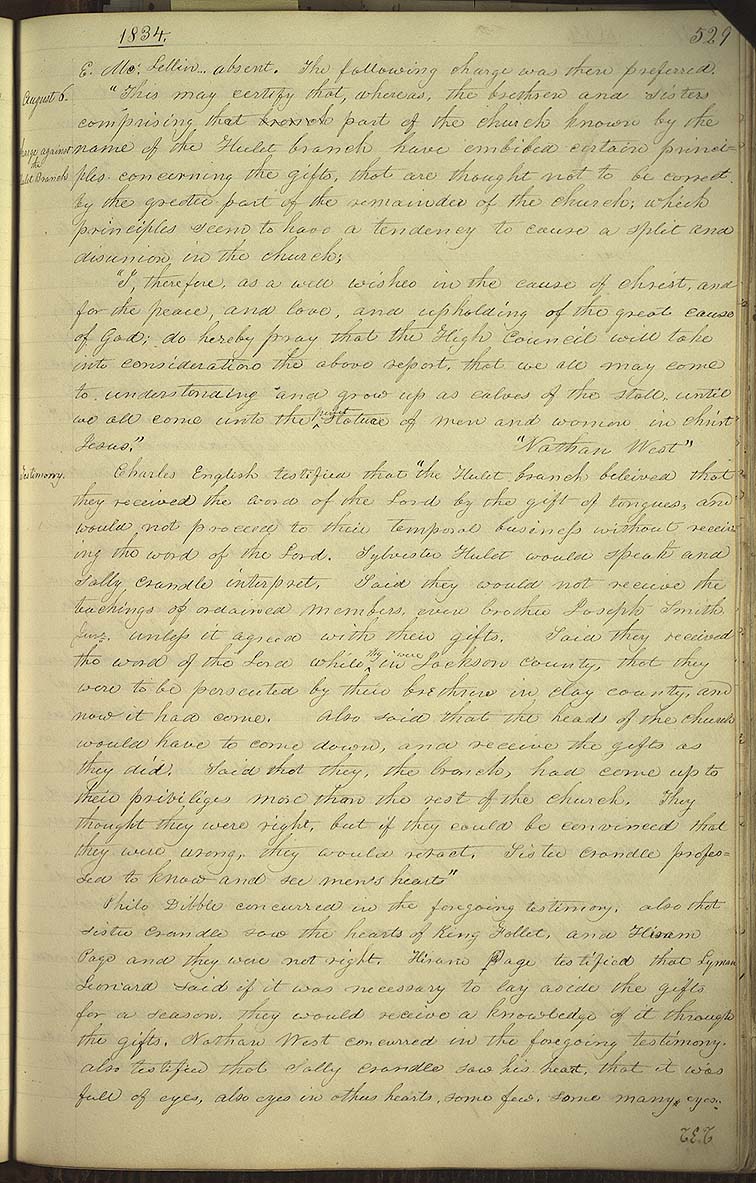 1834.
529
E. Mc. Lellin.. absent. The following charge was then preferred.
August 6.
"This may certify that, whereas, the brethren and Sisters
comprising that branch part of the church known by the
Charge against
the
Hulet Branch
name of the Hulet branch have embibed certain princi=
ples concerning the gifts, that are thought not to be correct
by the greater part of the remainder of the church; which
principles seem to have a tendency to cause a split and
disunion in the church;
"I, therefore, as a well wisher in the cause of christ, and
for the peace, and love, and upholding of the great cause
of God; do hereby pray that the High Council will take
into consideration the above report, that we all may come
to understanding and grow up as calves of the stall, until
we all come unto the perfect Stature of men and women in christ
Jesus."
"Nathan West"
Testimony.
Charles English testified that "the Hulet branch beleived that
they received the word of the Lord by the gift of tongues, and
would not proceed to their temporal business without receiv
ing the word of the Lord. Sylvester Hulet would speak and
Sally crandle interpret. Said they would not receive the
teachings of ordained members, even brother Joseph Smith
Junr. unless it agreed with their gifts. Said they received
the word of the Lord while they were in Jackson county, that they
were to be persecuted by their brethren in clay county, and
now it had come. Also said that the heads of the church
would have to come down, and receive the gifts as
they did. Said that they, the branch, had come up to
their priviliges more than the rest of the church. They
thought they were right, but if they could be convinced that
they were wrong, they would retract. Sister crandle profes=
sed to know and see men's hearts"
Philo Dibble concurred in the foregoing testimony. also that
sister crandle saw the hearts of King Follet, and Hiram
Page and they were not right. Hiram Page testified that Lyman
Leonard said if it was necessary to lay aside the gifts
for a season, they would receive a knowledge of it through
the gifts. Nathan West concurred in the foregoing testimony.
also testified that Sally crandle saw his heart, that it was
full of eyes, also eyes in others hearts, some few, some many eyes.